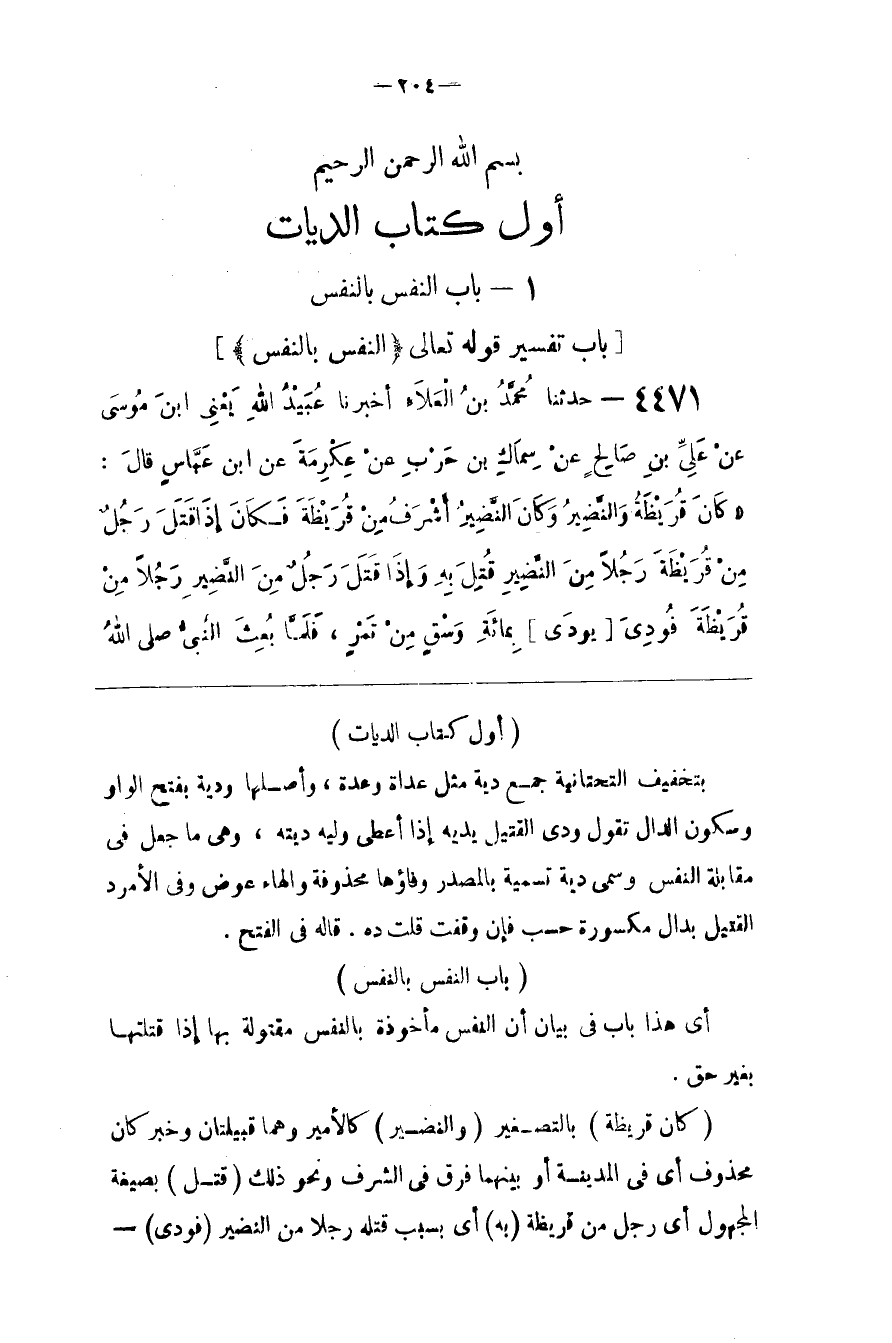 — ٢٠٤ —
بسم الله الرحمن الرحيم
أول كتاب الديات
١ — باب النفس بالنفس
[ باب تفسير قوله تعالى ﴿النفس بالنفس﴾ ]
٤٤٧١ — حدثنا مُحمَّدُ بنُ الْعَلاَءِ أخبرنا عُبَيْدُ اللهِ يَعْنِى ابنَ مُوسَى
عنْ عَلِيِّ بنِ صَالِحٍ عنْ سِمَاكِ بنِ حَرْبٍ عنْ عِكْرِمَةَ عن ابنِ عَبَّاسٍ قالَ :
« كَانَ قُرَيْظَةُ وَالنَّضِيرُ وَكَانَ النَّضِيرُ أَشْرَفُ مِنْ قُرَيْظَةَ فَكانَ إذَا قَتَلَ رَجُلٌ
مِنْ قُرَيْظَةَ رَجُلاً مِنَ النَّضِيرِ قُتِلَ بِهِ وَإذَا قَتَلَ رَجُلٌ مِنَ النَّضِيرِ رَجُلاً مِنْ
قُرَيْظَةَ فُودِىَ [ يودَى ] بِمائَةِ وَسْقٍ مِنْ تَمْرٍ ، فَلَمَّا بُعِثَ النَّبيُّ صلى اللهُ
( أول كتاب الديات )
بتخفيف التحتانية جمع دية مثل عداة وعدة ، وأصلها ودية بفتح الواو
وسكون الدال تقول ودى القتيل يديه إذا أعطى وليه ديته ، وهى ما جعل فى
مقابلة النفس وسمى دية تسمية بالمصدر وفاؤها محذوفة والهاء عوض وفى الأمرد
القتيل بدال مكسورة حسب فإن وقفت قلت ده . قاله فى الفتح .
( باب النفس بالنفس )
أى هذا باب فى بيان أن النفس مأخوذة بالنفس مقتولة بها إذا قتلتها
بغير حق .
( كان قريظة ) بالتصغير ( والنضير ) كالأمير وهما قبيلتان وخبر كان
محذوف أى فى المدينة أو بينهما فرق فى الشرف ونحو ذلك ( قتل ) بصيغة
المجهول أى رجل من قريظة (به) أى بسبب قتله رجلا من النضير (فودى) —